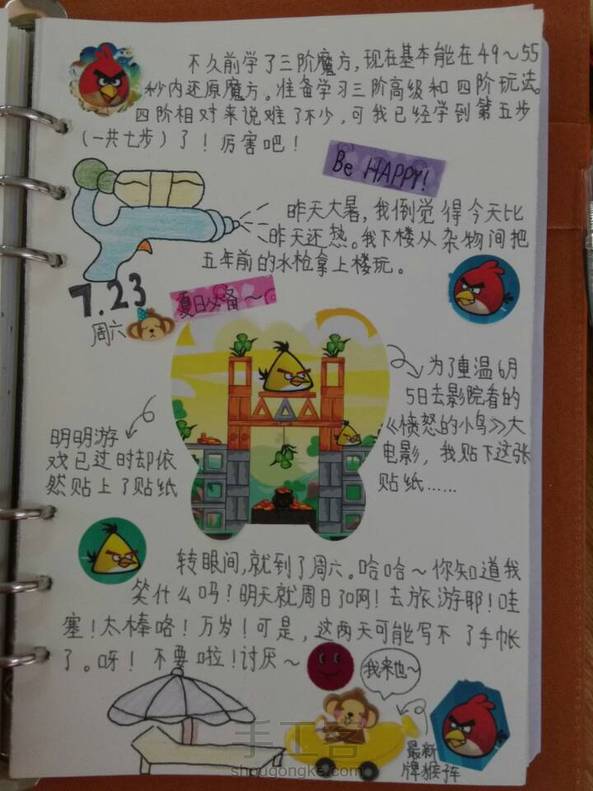 不久前学了三阶魔方，现在基本能在49～55
秒内还原魔方。准备学习三阶高级和四阶玩法。
四阶相对来说难了不少，可我已经学到第五步
（一共七步）了！厉害吧！
Be HAPPY!
昨天大暑，我倒觉得今天比
昨天还热。我下楼从杂物间把
五年前的水枪拿上楼玩。
7.23
周六
夏日必备～
为了重温6月
5日去影院看的
《愤怒的小鸟》大
电影，我贴下这张
贴纸……
明明游
戏已过时却依
然贴上了贴纸
转眼间，就到了周六。哈哈～你知道我
笑什么吗？明天就周日了啊！去旅游耶！哇
塞！太棒咯！万岁！可是，这两天可能写不了手帐
了。呀！不要啦！讨厌～
我来也～
最新
牌猴子车
手工客
shougongke.com